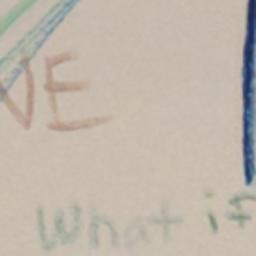 VE
What if